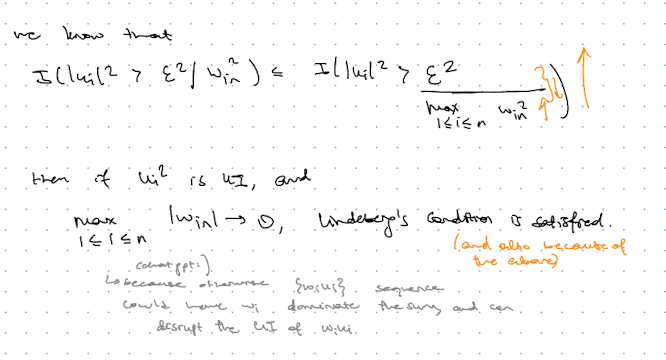 we know that
I(|ui|² > ε²/w²in) ≤ I(|ui|² > ε² / max 1≤i≤n w²in)
then if ui² is UI, and
max 1≤i≤n |win| → 0, Lindeberg's Condition is satisfied.
(and also because of
the above)
(chatgpt:)
↳ because otherwise {wiui} sequence
could have wi dominate the sum, and can
disrupt the UI of wiui.